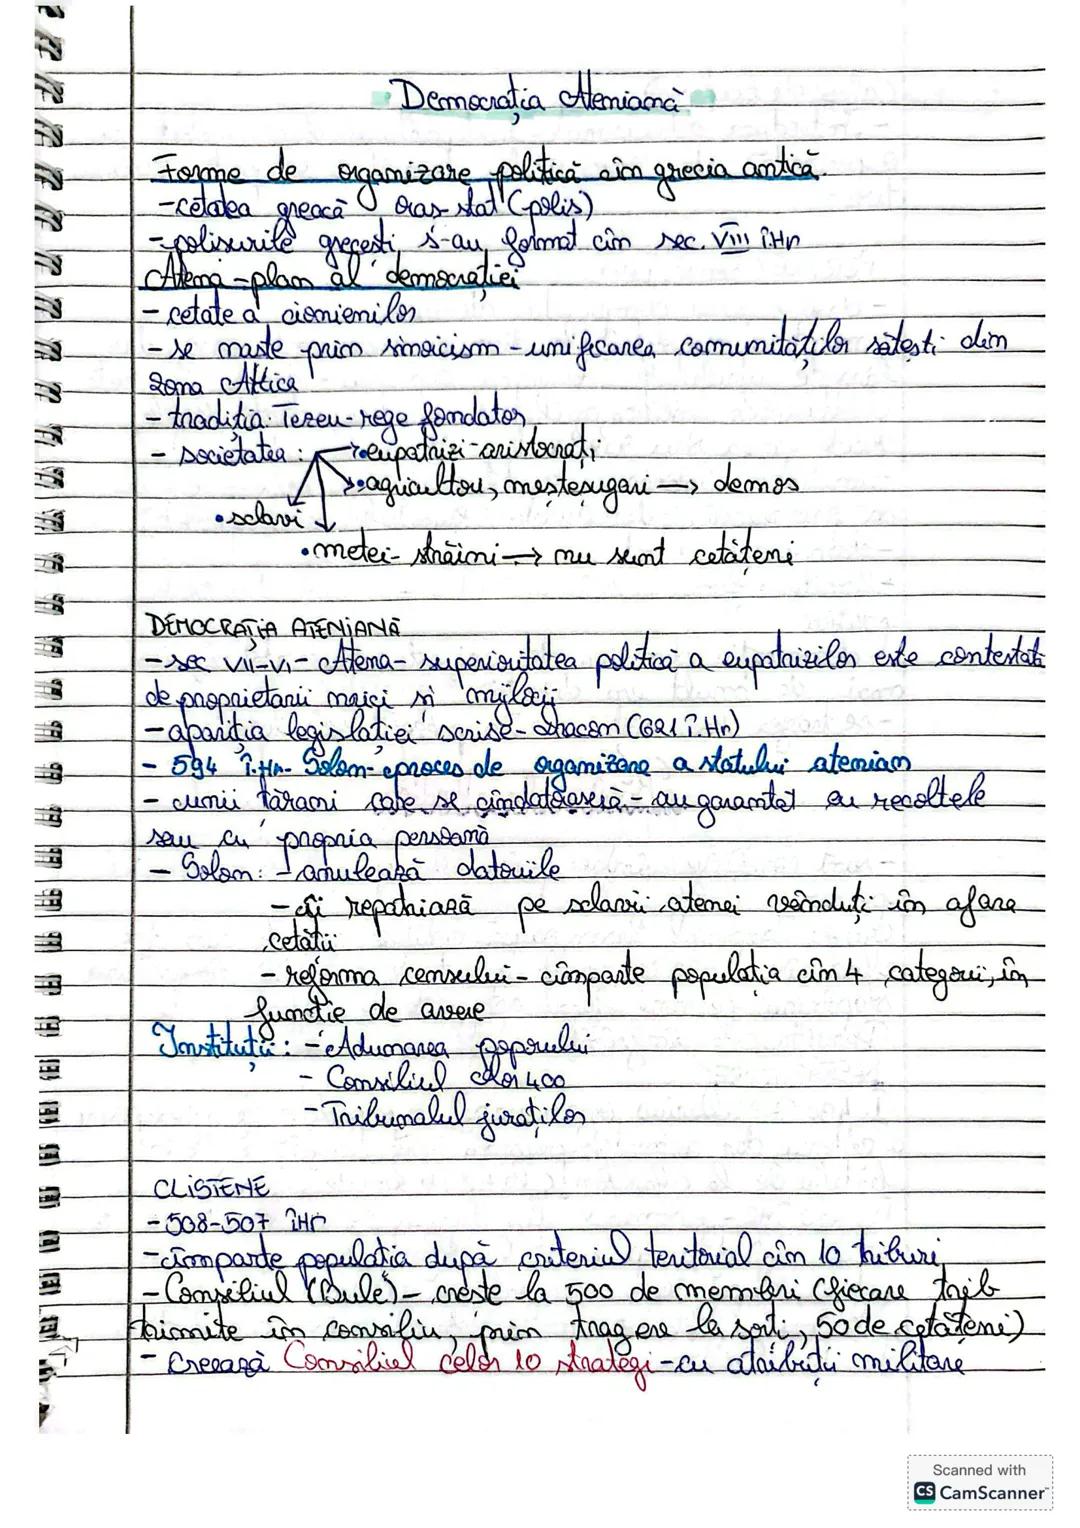 Democrația Ateniană
Forme de organizare politică în grecia antică.
-cetatea greacă oraș-stat (polis)
-polisurile grecești s-au format în sec. VIII î.Hr
Atena-plan al democrației
- cetate a ionienilor
- se naște prin sinoicism - unificarea comunităților sătești din
zona Attica
- tradiția: Tezeu-rege fondator
- societatea: •eupatrizi-aristocrați
•agricultori, meșteșugari → demos
•sclavi
•metei- străini → nu sunt cetățeni
DEMOCRAȚIA ATENIANĂ
-sec VII-VI- Atena- superioritatea politică a eupatrizilor este contestată
de proprietarii mici și mijlocii
-apariția legislației scrise- Dracon (621 î.Hr)
- 594 î.Hr- Solon- proces de organizare a statului atenian
- unii țărani care se îndatoraseră - au garantat cu recoltele
sau cu propria persoană
- Solon: - anulează datoriile
-îi repatriază pe sclavii atenei vânduți în afara
cetății
- reforma censului - împarte populația în 4 categorii, în
funcție de avere
Instituții: - Adunarea poporului
- Consiliul celor 400
- Tribunalul juraților
CLISTENE
-508-507 îHr
-împarte populația după criteriul teritorial în 10 triburi
-Consiliul (Bulé)- crește la 500 de membri (fiecare trib
trimite în consiliu, prin tragere la sorți, 50 de cetățeni)
- creează Consiliul celor 10 strategi -cu atribuții militare
Scanned with
CS CamScanner